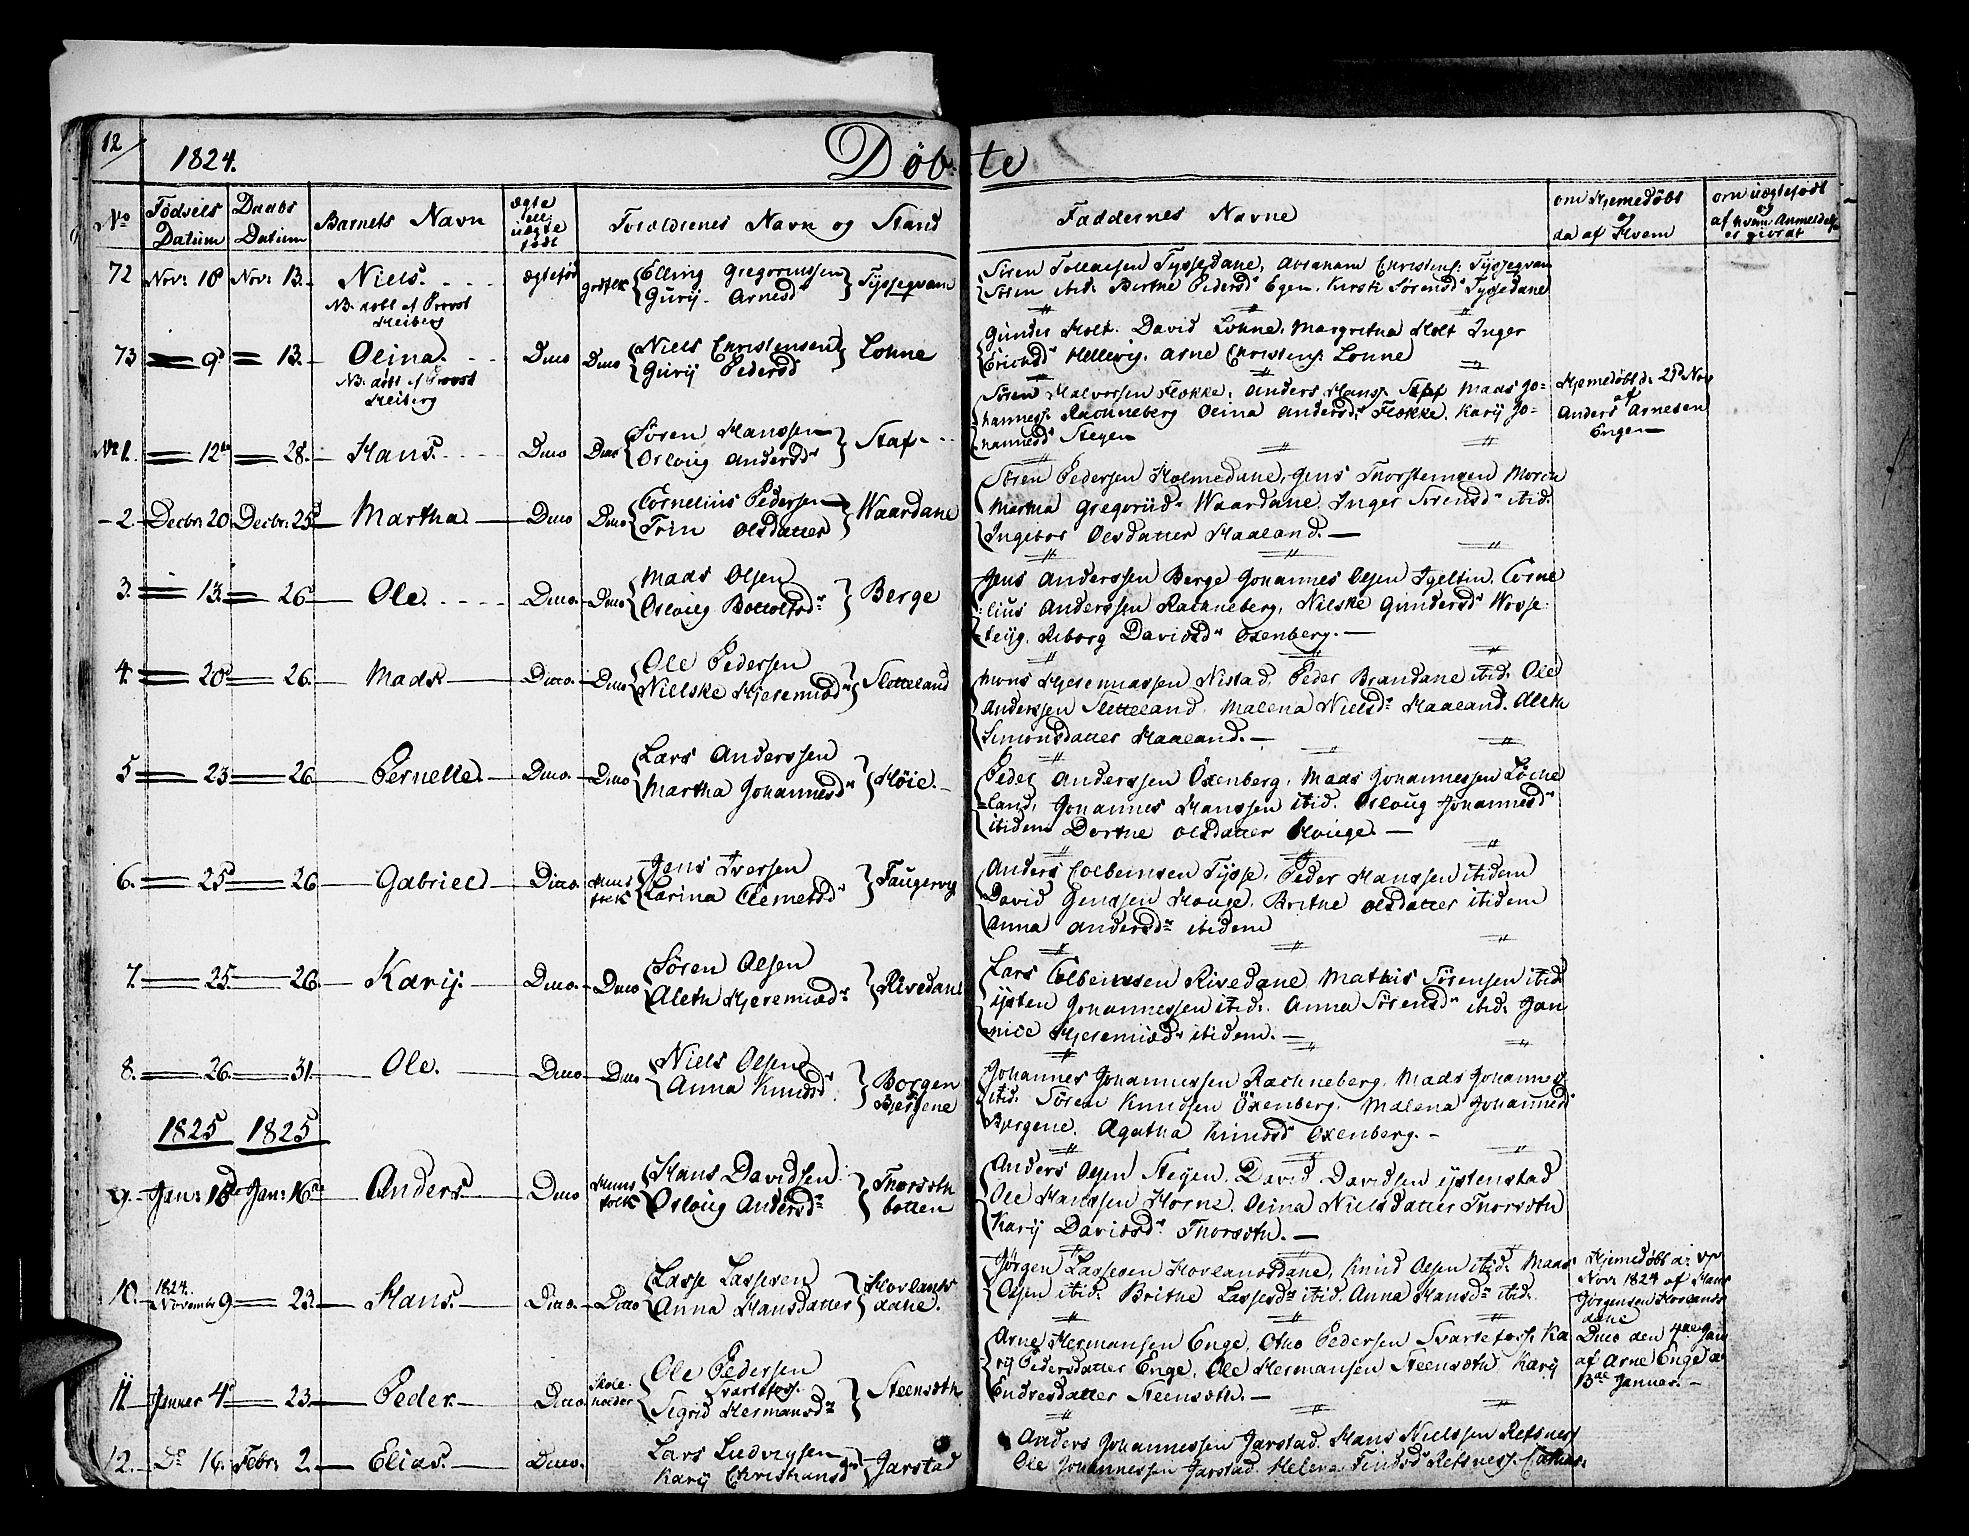 12
1824.
Døb-te
No
Fødsels Datum
Daabs Datum
Barnets Navn
ægte ell. uægte født
Forældrenes Navn og Stand
Faddernes Navne
om Hjemedøbt og da af Hvem
om uægtefødt og af hvem Anmeldelse er giordt
72 Nov: 10 Nov: 13. Niels. ægtefød {Elling Gregoriussen Gurij Arnesd} Tyssegvam
NB. døbt af Provst Heiberg
Søren Tollaesen Tyssedane, Abraham Christens: Tyssegvam
Søren ibid. Birthe Pedersd Egen. Kirsti Sørensd Tyssedane
73 9d 13. Oeina. Ditto Ditto {Niels Christensen Gurij Pedersd} Lohne
NB. døbt af Provst Heiberg
Gunder Holt. David Lohne, Margretha Holt Inger
Erichsd Hellevig. Arne Christens. Lohne
No 1. 12te 28. Hans. Ditto Ditto {Søren Hanssen Osloug Andersd} Staf
Søren Halvorsen Flokke, Anders Hans. Staf Maas Jo-
hannes. Rachneberg Oeina Andersd. Flokke. Karij Jo-
hannesd Steyen
Hjemedøbt d. 21d Nov
af
Anders Arnesen
Engen
2. Decbr: 20 Decbr: 25d Martha Ditto Ditto {Cornelius Pedersen Trin Olsdatter} Waardane
Søren Pedersen Holmedane, Jens Thorstensen
Martha Gregoriid. Waardane. Inger Sørensd. ibid.
Ingebor Olsdatter Haaland.
3. 13. 26d Ole. Ditto. Ditto {Mads Olsen Osloug Bottolfsd} Berge
Jens Anderssen Berge Johannes Olsen Tyeltin. Corne
lius Anderssen Rachneberg, Nilske Gundersd Wosse-
teijg. Riborg Davidsd Oxenberg.
4. 20d 26. Mads Ditto. Ditto {Ole Pedersen Nielske Hjeremiæd} Sletteland
Mons Hjeremiassen Nistad. Peder Brandane ibid. Ole
Anderssen Sletteland. Malena Nielsd. Haaland. Aleth
Simonsdatter Haaland.
5 23 26 Pernelle. Ditto. Ditto {Lars Anderssen Martha Johannesd} Høie.
Peder Anderssen Oxenberg, Maas Johannessen Løche
land, Johannes Hanssen ibid. Osloug Johannesd
ibidem Dorthe Olsdatter Houge.
6. 25d 26 Gabriel Ditto. Huusfolk {Jens Iversen Carina Clemetsd} Faugervig
Anders Colbeinsen Tysse, Peder Hanssen ibidem
David Jenssen Houge. Brithe Olsdatter ibidem
Anna Andersd. ibidem
7. 25. 26. Karij. Ditto. Ditto {Søren Olsen Aleth Hjeremiæd} Rivedane
Lars Colbeinssen Rivedane Mathis Sørensen ibid
ijsten Johannessen ibid. Anna Sørensd ibid: Jan
nice Hjeremiæd ibidem.
8. 26. 31. Ole. Ditto Ditto {Niels Olsen Anna Knudsd} Borgen Bjergene
Johannes Johannessen Rachneberg, Mads Johannes
ibid. Søren Knudsen Oxenberg. Malena Johannesd
Bjergene. Agatha Oxenberg.
1825 1825
9. Jan: 16d Jan: 16d Anders Ditto Huusfolk {Hans Davidsen Osloug Andersd.} Thorsothbotten
Anders Olsen Steyen. David Davidsen ijstenstad
Ole Hanssen Horne. Oeina Nielsdatter Thorsoth
Karij Davidsd Thorsoth.
10. 1824. November 9 23. Hans. Ditto. Ditto {Lasse Lassesen Anna Hansdatter} Hovlandsdane.
Jørgen Lassesen Hovlandsdane, Knud Olsen ibid. Maas
Olsen ibid. Brithe Lassesd. ibid. Anna Hansd. ibid.
Hjemedøbt d:
Nov: 1824 af Hans
Jørgensen Hovlands
dane
11. Januer 4d 23. Peder. Ditto. Skoleholder {Ole Pedersen Svartefoss. Sigrid Hermansd} Steensoth
Arne Hermansen Enge, Otho Pedersen Svartefoss. Ka
rij Pedersdatter Enge, Ole Hermansen Steensoth Karij
Endresdatter Steensoth.
Ditto den 4de Jan
af Arne Enge
13de Januer.
12. Ds 16. Febr: 2. Elias. Ditto. {Lars Ludvigsen Karij Christiansd} Jarstad
Anders Johannessen Jarstad. Hans Nielssen Retsness
Ole Johannessen Jarstad. Helena Findsd Retsness.